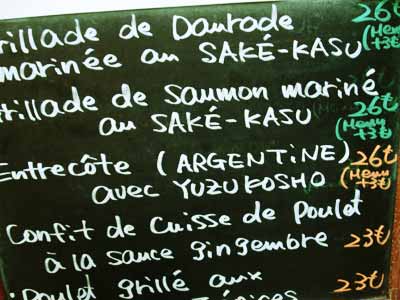 rillade de Daurade 26€
marinée au SAKÉ-KASU (Menu +3€)
rillade de saumon mariné
au SAKÉ-KASU 26€ (Menu +3€)
Entrecôte (ARGENTINE) 26€
avec YUZUKOSHO (Menu +3€)
Confit de Cuisse de Poulet
à la sauce gingembre 23€
Poulet grillé aux 23€